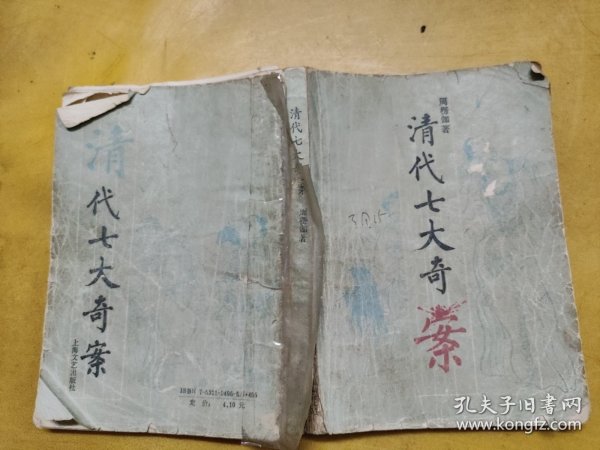 周楞伽著
清代七大奇案
3月15
清代七大
周楞伽著
清代七大奇案
上海文艺出版社
定价: 4.10元
孔夫子旧书网
www.kongfz.com